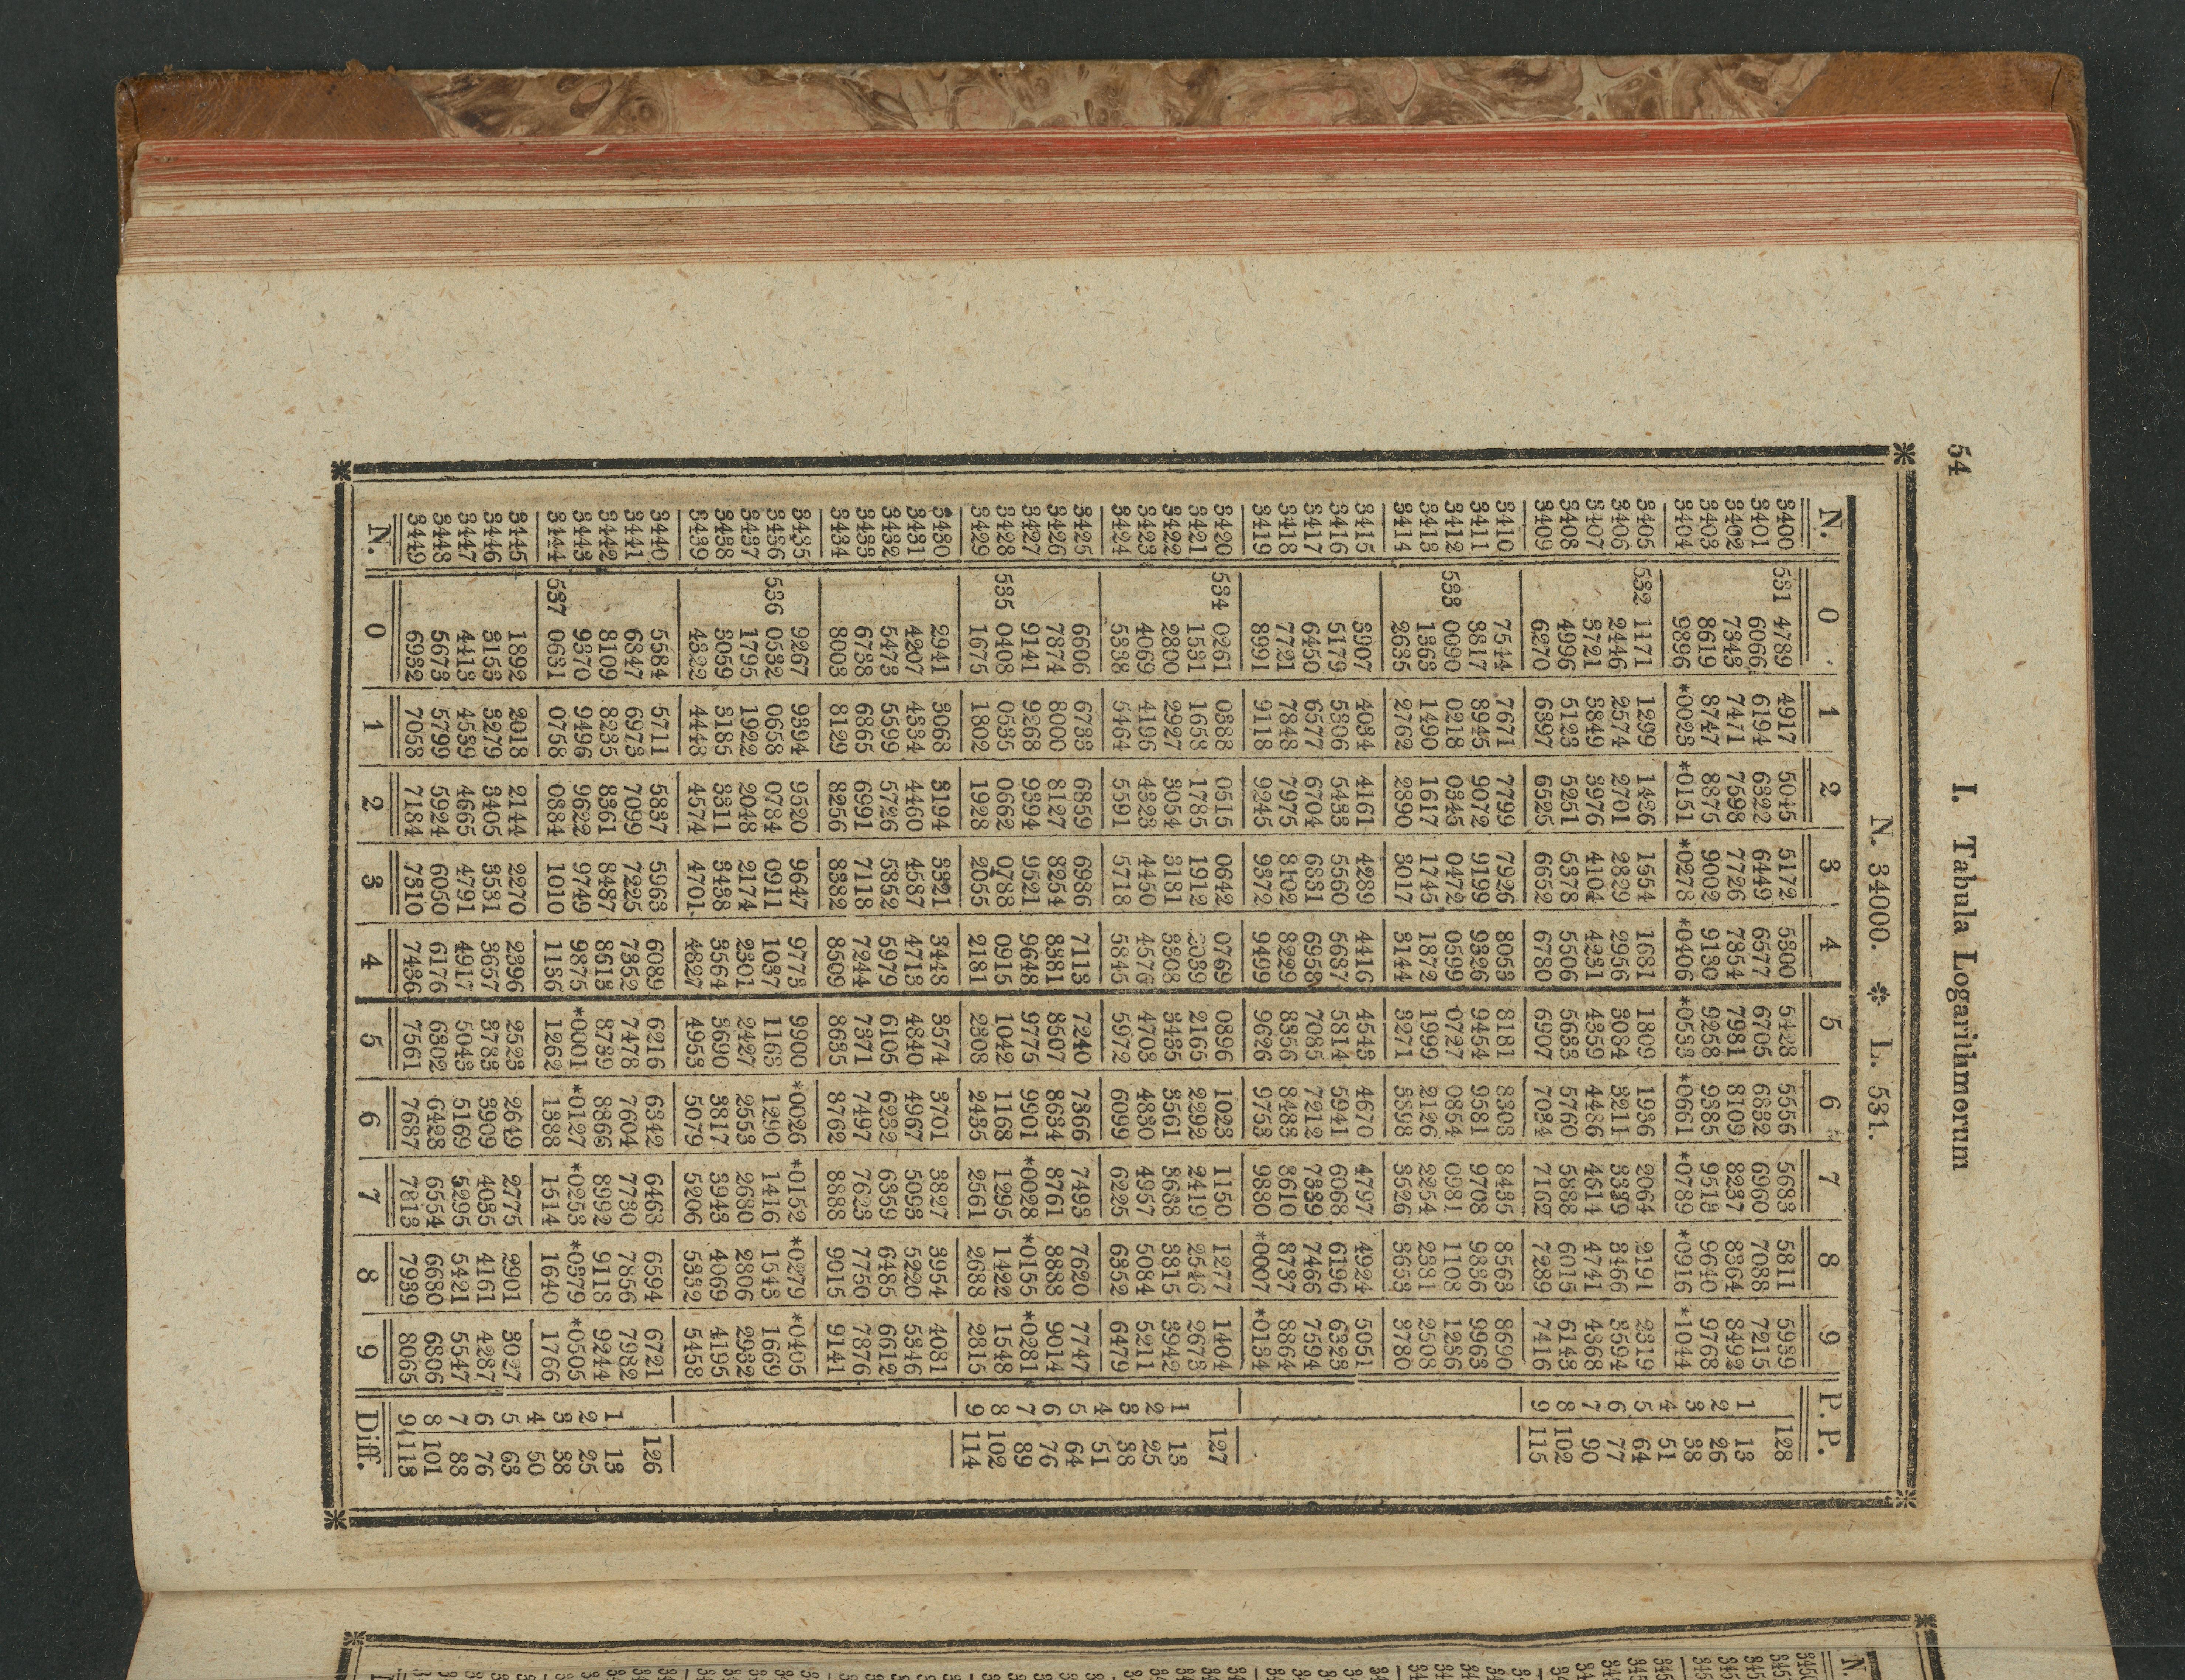 54 I. Tabula Logarithmorum
N. 34000. * L. 531.
N. 0 1 2 3 4 5 6 7 8 9 P. P.
3400 531 4789 4917 5045 5172 5300 5428 5556 5683 5811 5939 128
3401 6066 6194 6322 6449 6577 6705 6832 6960 7088 7215
3402 7343 7471 7598 7726 7854 7981 8109 8237 8364 8492 1 13
3403 8619 8747 8875 9002 9130 9258 9385 9513 9640 9768 2 26
3404 9896 *0023 *0151 *0278 *0406 *0533 *0661 *0789 *0916 *1044 3 38
4 51
3405 532 1171 1299 1426 1554 1681 1809 1936 2064 2191 2319 5 64
3406 2446 2574 2701 2829 2956 3084 3211 3339 3466 3594 6 77
3407 3721 3849 3976 4104 4231 4359 4486 4614 4741 4868 7 90
3408 4996 5123 5251 5378 5506 5633 5760 5888 6015 6143 8 102
3409 6270 6397 6525 6652 6780 6907 7034 7162 7289 7416 9 115
3410 7544 7671 7799 7926 8053 8181 8308 8435 8563 8690
3411 8817 8945 9072 9199 9326 9454 9581 9708 9836 9963
3412 533 0090 0218 0345 0472 0599 0727 0854 0981 1108 1236
3413 1363 1490 1617 1745 1872 1999 2126 2254 2381 2508
3414 2635 2762 2890 3017 3144 3271 3398 3526 3653 3780
3415 3907 4034 4161 4289 4416 4543 4670 4797 4924 5051
3416 5179 5306 5433 5560 5687 5814 5941 6068 6196 6323
3417 6450 6577 6704 6831 6958 7085 7212 7339 7466 7594
3418 7721 7848 7975 8102 8229 8356 8483 8610 8737 8864
3419 8991 9118 9245 9372 9499 9626 9753 9880 *0007 *0134
3420 534 0261 0388 0515 0642 0769 0896 1023 1150 1277 1404 127
3421 1531 1658 1785 1912 2039 2165 2292 2419 2546 2673
3422 2800 2927 3054 3181 3308 3435 3561 3688 3815 3942 1 13
3423 4069 4196 4323 4450 4576 4703 4830 4957 5084 5211 2 25
3424 5338 5464 5591 5718 5845 5972 6099 6225 6352 6479 3 38
4 51
3425 6606 6733 6859 6986 7113 7240 7366 7493 7620 7747 5 64
3426 7874 8000 8127 8254 8381 8507 8634 8761 8888 9014 6 76
3427 9141 9268 9394 9521 9648 9775 9901 *0028 *0155 *0281 7 89
3428 535 0408 0535 0662 0788 0915 1042 1168 1295 1422 1548 8 102
3429 1675 1802 1928 2055 2181 2308 2435 2561 2688 2815 9 114
3430 2941 3068 3194 3321 3448 3574 3701 3827 3954 4081
3431 4207 4334 4460 4587 4713 4840 4967 5093 5220 5346
3432 5473 5599 5726 5852 5979 6105 6232 6359 6485 6612
3433 6738 6865 6991 7118 7244 7371 7497 7623 7750 7876
3434 8003 8129 8256 8382 8509 8635 8762 8888 9015 9141
3435 9267 9394 9520 9647 9773 9900 *0026 *0152 *0279 *0405
3436 536 0532 0658 0784 0911 1037 1163 1290 1416 1543 1669
3437 1795 1922 2048 2174 2301 2427 2553 2680 2806 2932
3438 3059 3185 3311 3438 3564 3690 3817 3943 4069 4195
3439 4322 4448 4574 4701 4827 4953 5079 5206 5332 5458
3440 5584 5711 5837 5963 6089 6216 6342 6468 6594 6721 126
3441 6847 6973 7099 7225 7352 7478 7604 7730 7856 7982
3442 8109 8235 8361 8487 8613 8739 8866 8992 9118 9244 1 13
3443 9370 9496 9622 9749 9875 *0001 *0127 *0253 *0379 *0505 2 25
3444 537 0631 0758 0884 1010 1136 1262 1388 1514 1640 1766 3 38
4 50
3445 1892 2018 2144 2270 2396 2523 2649 2775 2901 3027 5 63
3446 3153 3279 3405 3531 3657 3783 3909 4035 4161 4287 6 76
3447 4413 4539 4665 4791 4917 5043 5169 5295 5421 5547 7 88
3448 5673 5799 5924 6050 6176 6302 6428 6554 6680 6806 8 101
3449 6932 7058 7184 7310 7436 7561 7687 7813 7939 8065 9 113
N. 0 1 2 3 4 5 6 7 8 9 Diff.